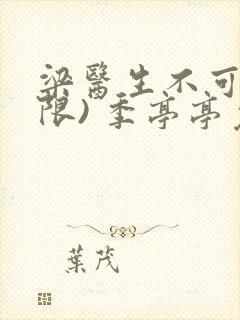 梁醫生不可
限)季亭亭
葉茂